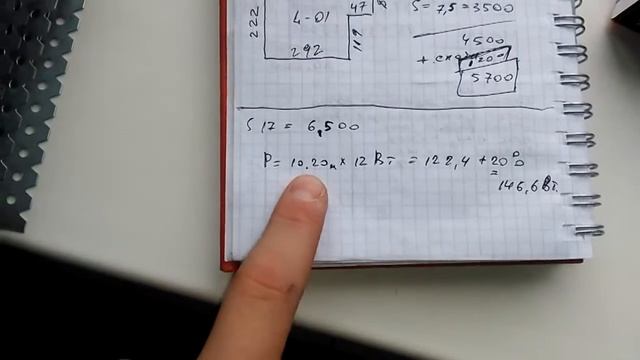 222
4-01
47
119
292
S = 7,5 = 3500
4500
+ 1200
5700
S 17 = 6,500
P = 10,20м × 12 Вт = 122,4 + 20%
= 146,6 Вт.